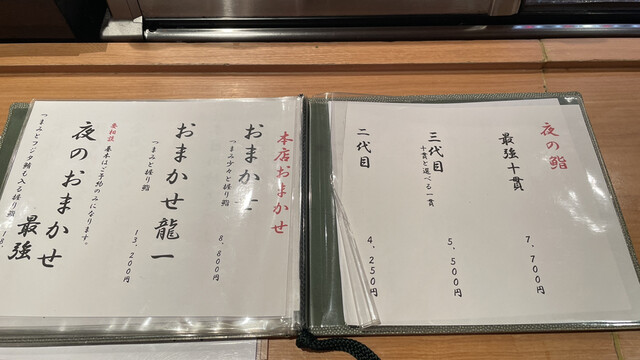 夜の鮨
最強十貫
7,700円
三代目
十貫と選べる一貫
5,500円
二代目
4,250円
本店おまかせ
おまかせ
つまみ少々と握り鮨
8,800円
おまかせ龍一
つまみと握り鮨
13,200円
夜のおまかせ
最強
要相談
基本はご予約のみになります。
つまみとフジタ鮪も入る握り鮨
18,